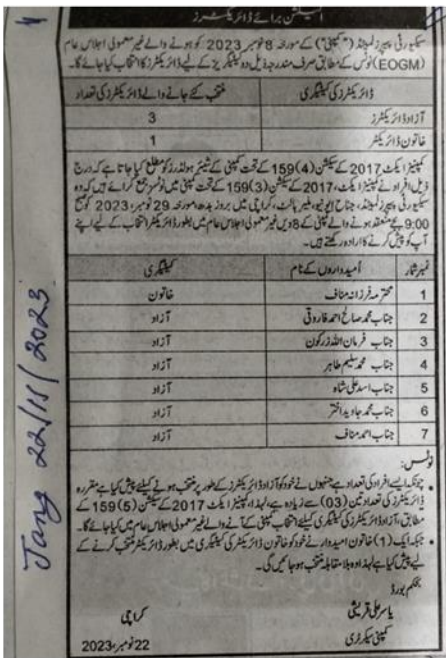 الیکشن برائے ڈائریکٹرز
سیکیورٹی پیپرز لمیٹڈ ("کمپنی") کے مورخہ 8 نومبر 2023 کو ہونے والے غیر معمولی اجلاس عام
(EOGM) نوٹس کے مطابق صرف مندرجہ ذیل دو کیٹیگریز کے لیے ڈائریکٹرز کا انتخاب کیا جائے گا۔
ڈائریکٹرز کی کیٹیگری منتخب کئے جانے والے ڈائریکٹرز کی تعداد
آزاد ڈائریکٹرز 3
خاتون ڈائریکٹر 1
کمپنیز ایکٹ 2017 کے سیکشن (4)159 کے تحت کمپنی کے شیئر ہولڈرز کو مطلع کیا جاتا ہے کہ درج
ذیل افراد نے کمپنیز ایکٹ، 2017 کے سیکشن (3)159 کے تحت کمپنی میں نوٹسز جمع کرائے ہیں کہ وہ
سیکیورٹی پیپرز لمیٹڈ، جناح ایونیو، ملیر ہالٹ، کراچی میں بروز بدھ، مورخہ 29 نومبر، 2023 کو صبح
9:00 بجے منعقد ہونے والے کمپنی کے 8ویں غیر معمولی اجلاس عام میں بطور ڈائریکٹر انتخاب کے لیے اپنے
آپ کو پیش کرنے کا ارادہ رکھتے ہیں۔
نمبر شمار اُمیدواروں کے نام کیٹیگری
1 محترمہ فرزانہ مناف خاتون
2 جناب محمد صالح احمد فاروقی آزاد
3 جناب فرمان اللہ زرکون آزاد
4 جناب محمد سلیم طاہر آزاد
5 جناب اسد علی شاہ آزاد
6 جناب محمد جاوید اختر آزاد
7 جناب احمد مناف آزاد
نوٹس:
• چونکہ ایسے افراد کی تعداد ہے جنہوں نے خود کو آزاد ڈائریکٹرز کے طور پر منتخب ہونے کیلئے پیش کیا ہے مقررہ
ڈائریکٹرز کی تعداد تین (03) سے زیادہ ہے، لہذا، کمپنیز ایکٹ 2017 کے سیکشن (5)159 کے
مطابق، آزاد ڈائریکٹرز کی کیٹیگری کیلئے انتخاب کمپنی کے آنے والے غیر معمولی اجلاس عام میں کیا جائے گا۔
• جبکہ ایک (1) خاتون امیدوار نے خود کو خاتون ڈائریکٹر کی کیٹیگری میں بطور ڈائریکٹر منتخب کرنے کے
لیے پیش کیا ہے لہذا وہ بلا مقابلہ منتخب ہو جائیں گی۔
بحکم بورڈ
یاسر علی قریشی
کمپنی سیکرٹری
کراچی
22 نومبر، 2023
Jang 22/11/2023